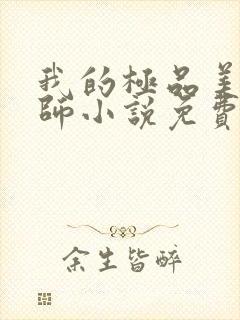 我的極品美
師小說免費
余生皆醉